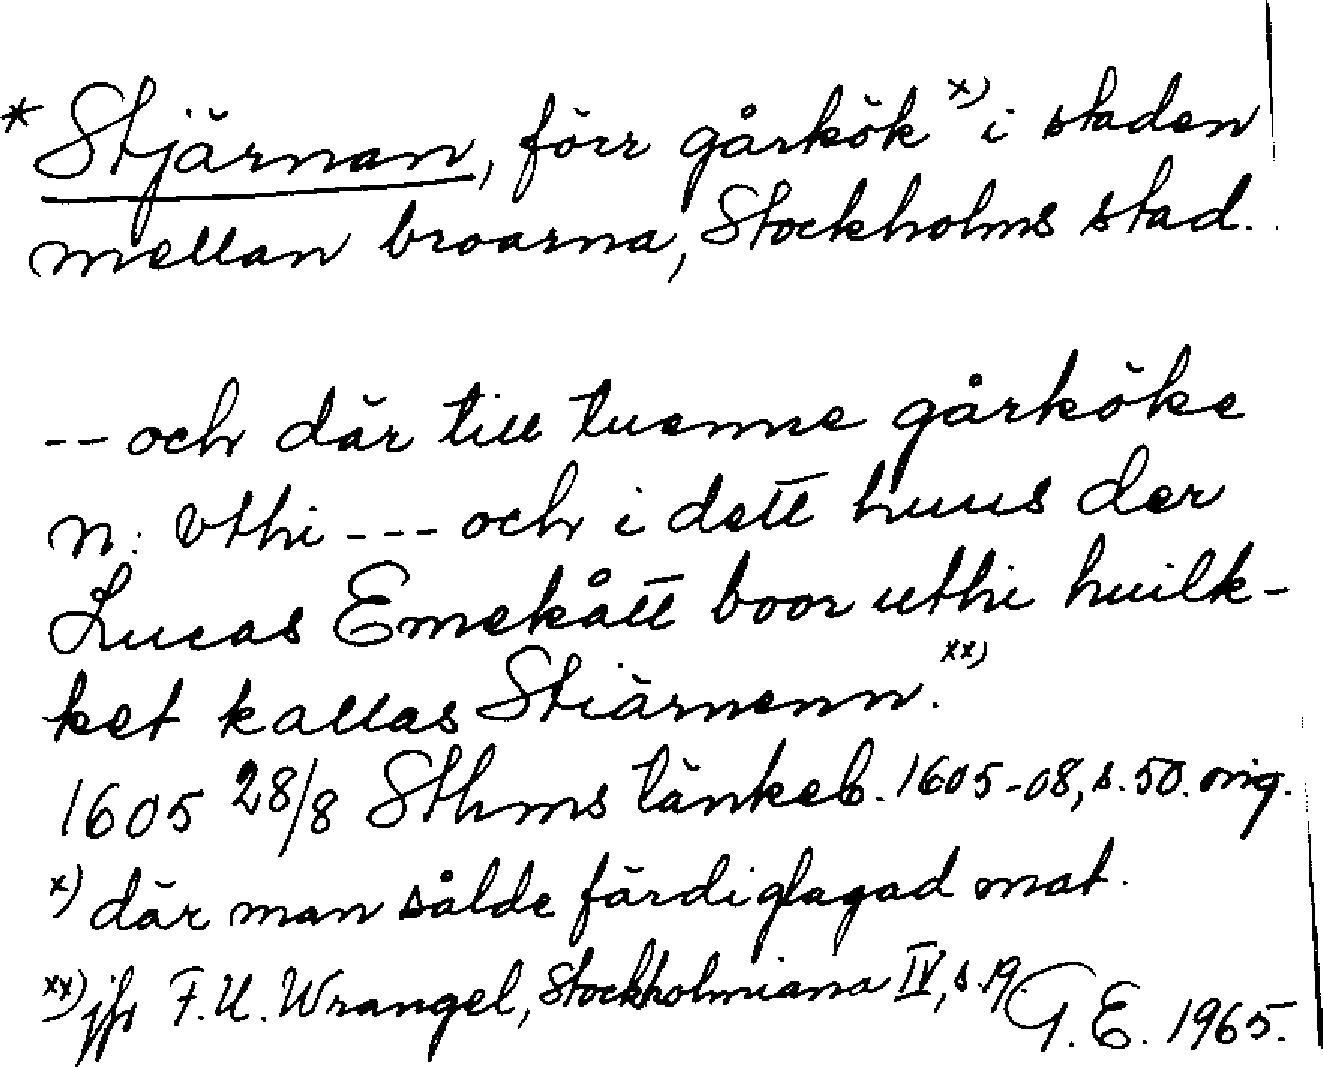 * Stjärnan, förr gårkök x) i staden
mellan broarna, Stockholms stad.
-- och där till tuenne gårköke
n: vthi --- och i dett huus der
Lucas Emekått boor uthi huilk-
ket kallas Stiärnenn. xx)
1605 28/8 Sthms tänkeb. 1605-08, s. 50. orig.
x) där man sålde färdiglagad mat.
xx) jfr F.U. Wrangel, Stockholmiana IV, s. 19.
G.E. 1965.